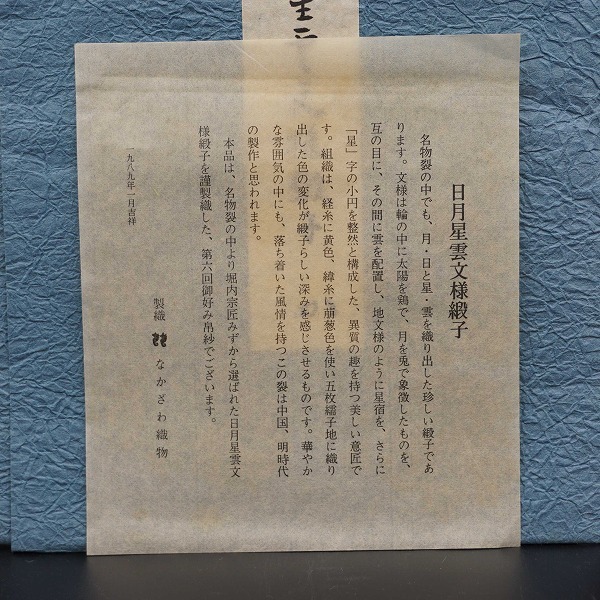 日月星雲文様緞子
名物裂の中でも、月・日と星・雲を織り出した珍しい緞子であ
ります。文様は輪の中に太陽を鶏で、月を兎で象徴したものを、
互の目に、その間に雲を配置し、地文様のように星宿を、さらに
「星」字の小円を整然と構成した、異質の趣を持つ美しい意匠で
す。組織は、経糸に黄色、緯糸に萠葱色を使い五枚繻子地に織り
出した色の変化が緞子らしい深みを感じさせるものです。華やか
な雰囲気の中にも、落ち着いた風情を持つこの裂は中国、明時代
の製作と思われます。
本品は、名物裂の中より堀内宗匠みずから選ばれた日月星雲文
様緞子を謹製織した、第六回御好み帛紗でございます。
一九八九年一月吉祥
製織 なかざわ織物